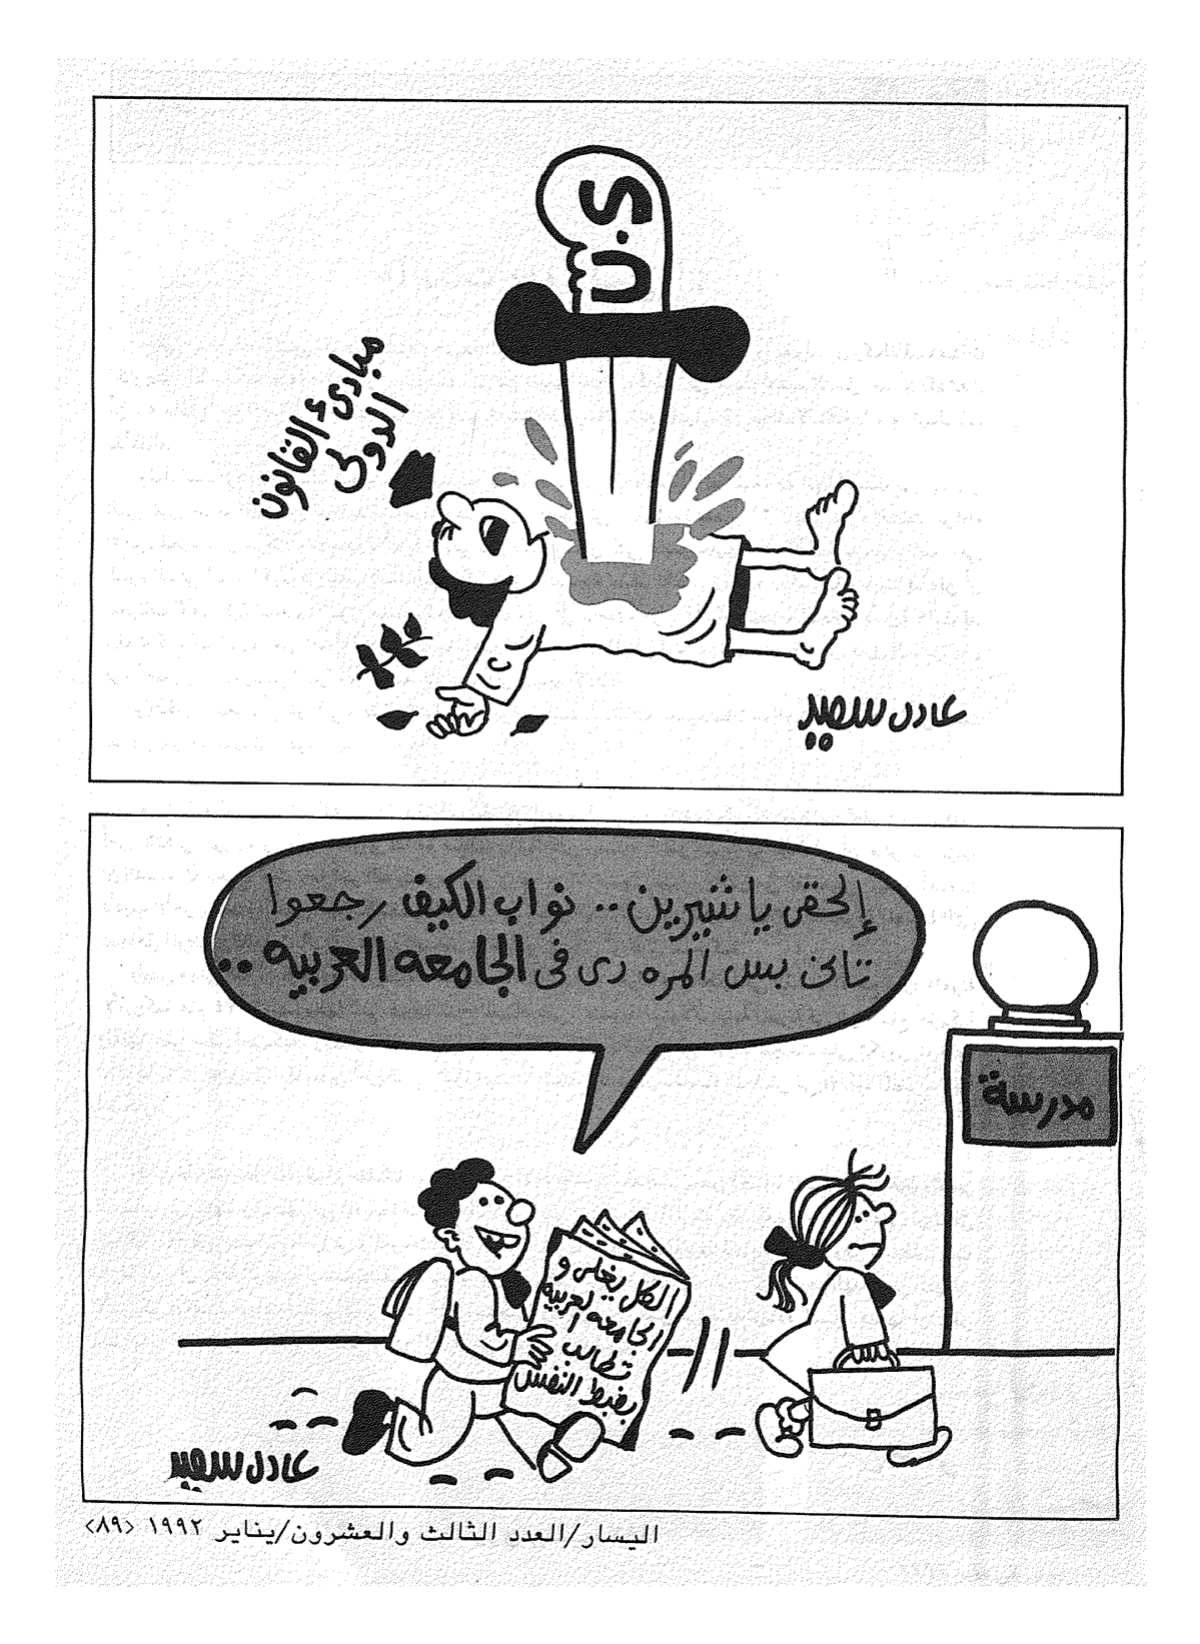 U.S
مبادئ القانون
الدولى
عادل سعيد
إلحقى يا شيرين.. نواب الكيف رجعوا
تانى بس المره دى فى الجامعه العربيه ..
مدرسة
الكل يغلى و
الجامعه لعربيه
تطالب
بضبط النفس
عادل سعيد
اليسار/العدد الثالث والعشرون/يناير ١٩٩٢ <٨٩>